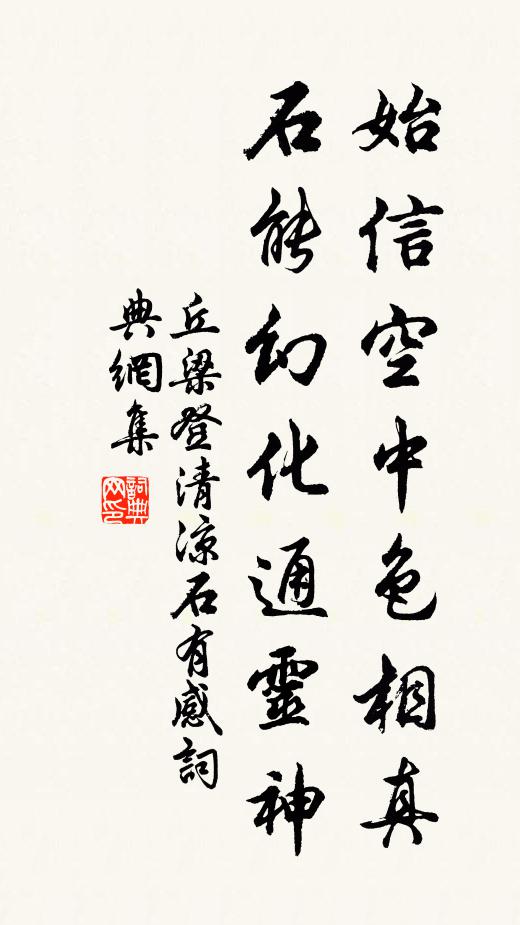 始信空中色相真
石能幻化通靈神
丘梁登清涼石有感詞
典網集
詞典
网印